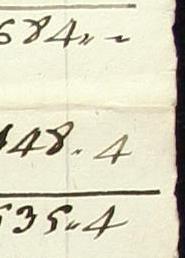 584" -
148.4
535"4